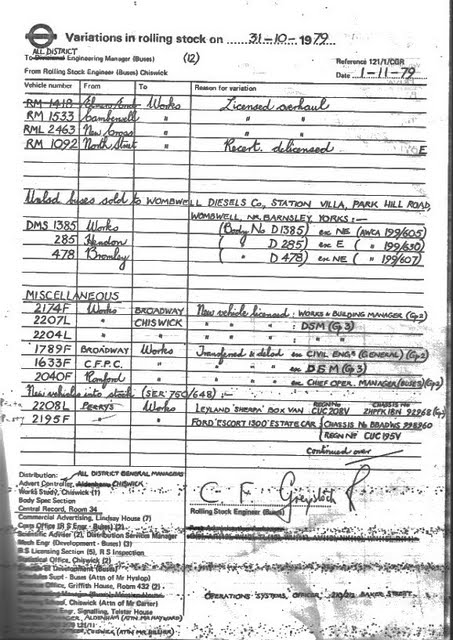 Variations in rolling stock on 31-10-1979
ALL DISTRICT
To Divisional Engineering Manager (Buses) (12)
Reference 121/1/CGR
From Rolling Stock Engineer (Buses) Chiswick
Date 1-11-79
Vehicle number From To Reason for variation
RM 1418 Works Licensed overhaul
RM 1533 Camberwell " " "
RML 2463 New Cross " " "
RM 1092 North Street " Recert. delicensed E
Unlsd buses sold to WOMBWELL DIESELS Co, STATION VILLA, PARK HILL ROAD,
WOMBWELL, NR. BARNSLEY, YORKS :-
DMS 1385 Works (Body No D 1385) ex NE (AWCA 199/605)
285 Hendon ( " D 285) ex E ( " 199/630)
478 Bromley ( " D 478) ex NE ( " 199/607)
MISCELLANEOUS
2174F Works BROADWAY New vehicle licensed : WORKS & BUILDING MANAGER (Gp 2)
2207L " CHISWICK " " " : DSM (Gp 3)
2204L " " " " " "
1789F BROADWAY Works Transferred & delsd ex CIVIL ENGR (GENERAL) (Gp 2)
1633F C.F.P.C. " " " ex DSM (Gp 3)
2040F Romford " " " ex CHIEF OPER. MANAGER (BUSES)
New vehicles into stock (SER 750/648) :-
REGN No CHASSIS No
2208L PERRYS Works LEYLAND 'SHERPA' BOX VAN CUC 208V
2195F " " FORD 'ESCORT 1300' ESTATE CAR CHASSIS No
REGN No CUC 195V
Continued over
Distribution: ALL DISTRICT GENERAL MANAGERS
Advert Controller, CHISWICK
Works Study, Chiswick (1)
Body Spec Section
Central Record, Room 34
Commercial Advertising, Lindsay House (7)
Rolling Stock Engineer (Buses)
Scientific Adviser (2), Distribution Services Manager
Mech Engr (Development - Buses) (3)
B S Licensing Section (5), R S Inspection
Statistical Office, Chiswick (2)
Schedules Supt - Buses (Attn of Mr Hyslop)
Office, Griffith House, Room 432 (2)
School, Chiswick (Attn of Mr Carter)
Engr, Signalling, Telstar House
OPERATIONS SYSTEMS OFFICER, BAKER STREET
ALDENHAM (ATTN MR HAYWARD)
121/11